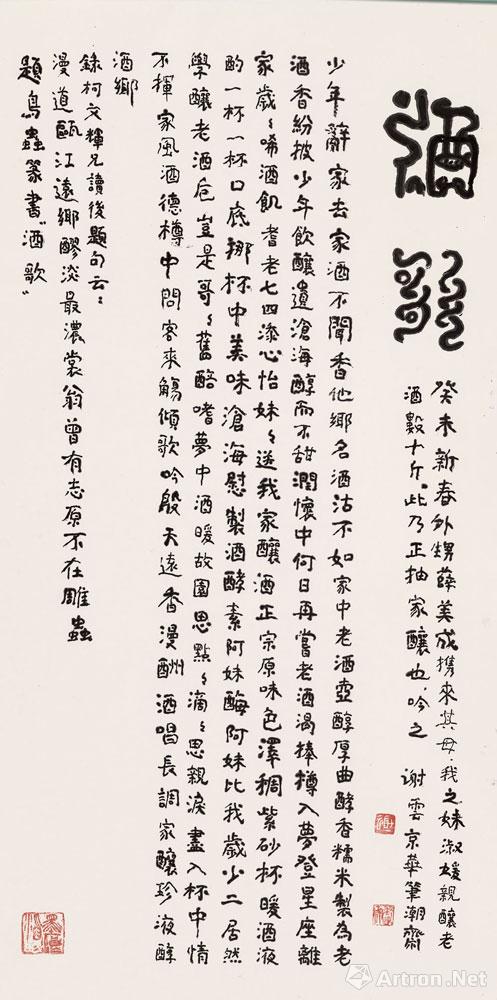 酒歌
癸未新春外甥薛美成携来其母、我之妹淑媛親釀老
酒數十斤。此乃正抽家釀也，吟之 謝雲京華筆潮齋
少年辭家去家酒不聞香他鄉名酒沽不如家中老酒壺醇厚曲酵香糯米製為老
酒香紛披少年飲釀遺滄海醇而不甜潤懷中何日再嘗老酒渴捧樽入夢登星座離
家歲歲唏酒飢耆老七四添心怡妹妹送我家釀酒正宗原味色澤稠紫砂杯暖酒液
酌一杯一杯口底挪杯中美味滄海慰製酒酵素阿妹酶阿妹比我歲少二居然
學釀老酒卮豈是哥哥舊醅嗜夢中酒暖故園思點點滴滴思親淚盡入杯中情
不揮家風酒德樽中問客來觴傾歌吟殷天遠香漫酬酒唱長調家釀珍液醇
酒鄉
錄柯文輝兄讀後題句云：
漫道甌江遠鄉醪淡最濃裳翁曾有志原不在雕蟲
題鳥蟲篆書“酒歌”
雅昌艺术网
Artron.Net